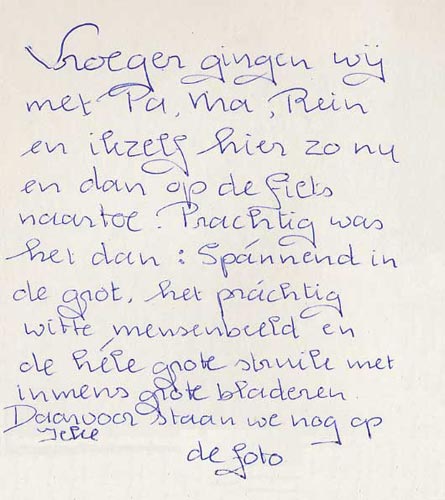 Vroeger gingen wij
met Pa, Ma, Rein
en ikzelf hier zo nu
en dan op de fiets
naartoe. Prachtig was
het dan: Spánnend in
de grot, het práchtig
witte mensenbeeld en
de héle grote struik met
inmens grote bladeren.
Daarvoor staan we nog op
de foto